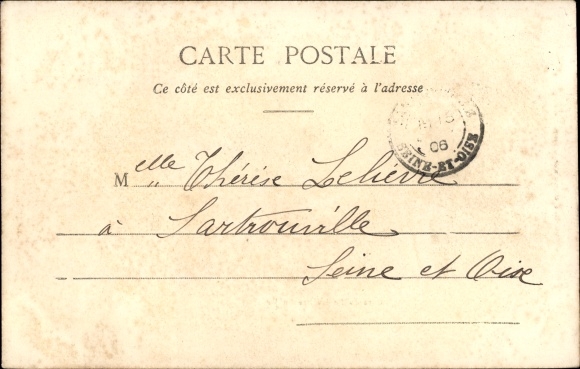 CARTE POSTALE
Ce côté est exclusivement réservé à l'adresse
15
06
SEINE-ET-OISE
Melle Thérèse Lelièvre
à Sartrouville
Seine et Oise